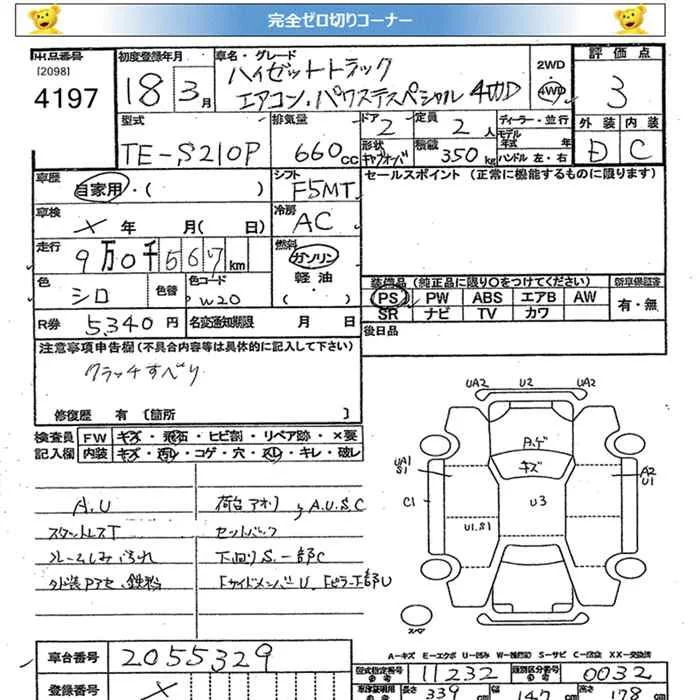 完全ゼロ切りコーナー
出品番号 初度登録年月 車名・グレード 2WD 評価点
[2098] ハイゼットトラック
4197 18 3月 エアコン・パワステスペシャル 4WD 4WD 3
型式 排気量 ドア 定員 ディーラー・並行 外装 内装
2 2人 モデル年式 年
TE-S210P 660cc 形状 積載 ハンドル 左・右 D C
キャブオーバ 350kg
車歴 シフト セールスポイント (正常に機能するものに限ります)
自家用・( ) F5MT
車検 冷房
× 年 月( 日) AC
走行 燃料
9万0千567km ガソリン
色 色替 色コード 軽油 装備品 (純正品に限り〇をつけてください) 新車保証書
シロ W20 ・( ) PS PW ABS エアB AW 有・無
SR ナビ TV カワ
R券 5,340円 名変通知期限 月 日 後日品
注意事項申告欄 (不具合内容等は具体的に記入して下さい)
クラッチすべり
修復歴 有 〔箇所 〕
検査員 FW キズ・飛石・ヒビ割・リペア跡・×要
記入欄 内装 キズ・汚レ・コゲ・穴・スレ・キレ・破レ
UA2 U2 UA2
A.ゲ
キズ
UA1
S1
A2
U1
C1
U3
U1.S1
A.U 荷台アオリ A.U.S.C
スタットレスT セットバック
下回りS.一部C
外装Pアセ、鉄粉
スペア
A-キズ E-エクボ U-凹み W-補修跡 S-サビ C-腐食 XX-交換済
車台番号 2055329 型式指定番号 11232 類別区分番号 0032
登録番号 × 長さ 339 幅 147 高さ 178